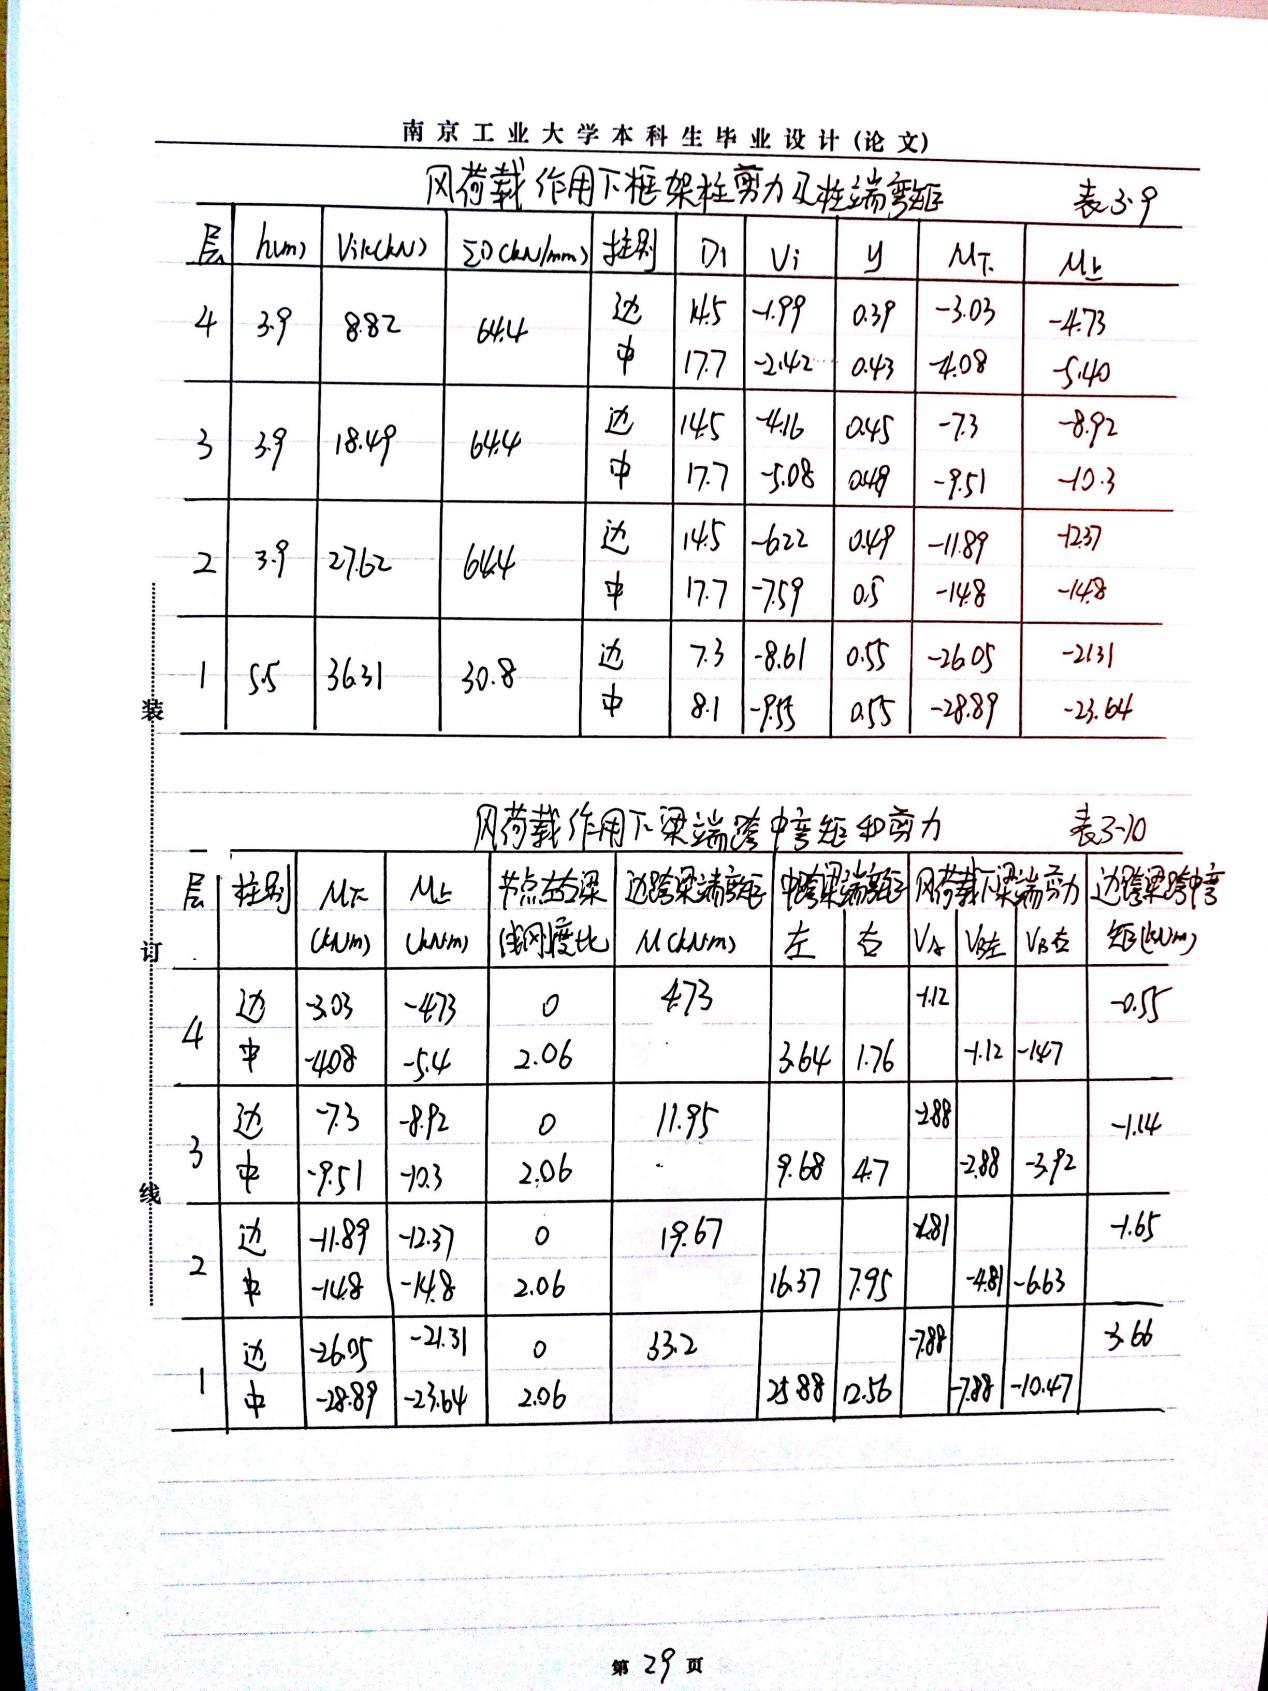 南京工业大学本科生毕业设计(论文)
风荷载作用下框架柱剪力及柱端弯矩 表3-9
层 h(m) Vik(kN) ΣD(kN/mm) 柱别 D1 Vi y M下 M上
边 14.5 -1.99 0.39 -3.03 -4.73
4 3.9 8.82 64.4
中 17.7 -2.42 0.43 -4.08 -5.40
边 14.5 -4.16 0.45 -7.3 -8.92
3 3.9 18.49 64.4
中 17.7 -5.08 0.48 -9.51 -10.3
边 14.5 -6.22 0.49 -11.89 -12.37
2 3.9 27.62 64.4
中 17.7 -7.59 0.5 -14.8 -14.8
边 7.3 -8.61 0.55 -26.05 -21.31
1 5.5 36.31 30.8
中 8.1 -9.55 0.55 -28.89 -23.64
装
订
线
风荷载作用下梁端跨中弯矩和剪力 表3-10
层 柱别 M下 M上 节点左右梁 边跨梁端弯矩 中跨梁端弯矩 风荷载下梁端剪力 边跨梁跨中弯
(kNm) (kNm) 线刚度比 M(kNm) 左 右 VA VB左 VB右 矩(kNm)
边 -3.03 -4.73 0 4.73 -1.12 -0.55
4
中 -4.08 -5.4 2.06 3.64 1.76 -1.12 -1.47
边 -7.3 -8.92 0 11.95 -2.88 -1.14
3
中 -9.51 -10.3 2.06 9.68 4.7 -2.88 -3.92
边 -11.89 -12.37 0 19.67 -4.81 -1.65
2
中 -14.8 -14.8 2.06 16.37 7.95 -4.81 -6.63
边 -26.05 -21.31 0 33.2 -7.88 -3.66
1
中 -28.89 -23.64 2.06 25.88 12.56 -7.88 -10.47
第29页